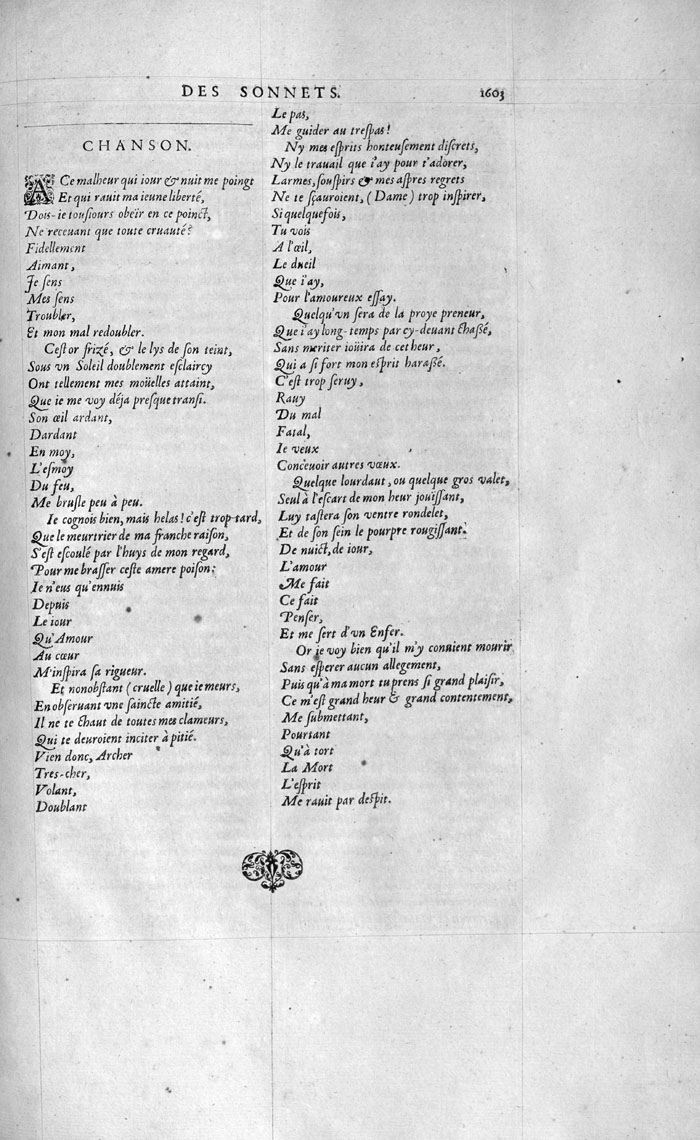 DES SONNETS. 1603
CHANSON.
A Ce malheur qui iour & nuit me poingt
Et qui rauit ma ieune liberté,
Dois-ie tousiours obeïr en ce poinct,
Ne receuant que toute cruauté?
Fidellement
Aimant,
Je sens
Mes sens
Troubler,
Et mon mal redoubler.
Cest or frizé, & le lys de son teint,
Sous vn Soleil doublement esclaircy
Ont tellement mes moüelles attaint,
Que ie me voy déja presque transi.
Son œil ardant,
Dardant
En moy,
L'esmoy
Du feu,
Me brusle peu à peu.
Ie cognois bien, mais helas! c'est trop tard,
Que le meurtrier de ma franche raison,
S'est escoulé par l'huys de mon regard,
Pour me brasser ceste amere poison;
Ie n'eus qu'ennuis
Depuis
Le iour
Qu'Amour
Au cœur
M'inspira sa rigueur.
Et nonobstant (cruelle) que ie meurs,
En obseruant vne saincte amitié,
Il ne te chaut de toutes mes clameurs,
Qui te deuroient inciter à pitié.
Vien donc, Archer
Tres-cher,
Volant,
Doublant
Le pas,
Me guider au trespas!
Ny mes esprits honteusement discrets,
Ny le trauail que i'ay pour t'adorer,
Larmes, souspirs & mes aspres regrets
Ne te sçauroient, (Dame) trop inspirer,
Si quelquefois,
Tu vois
A l'œil,
Le dueil
Que i'ay,
Pour l'amoureux essay.
Quelqu'vn sera de la proye preneur,
Que i'ay long-temps par cy-deuant chaßé,
Sans meriter ioüira de cet heur,
Qui a si fort mon esprit haraßé.
C'est trop seruy,
Rauy
Du mal
Fatal,
Ie veux
Conceuoir autres vœux.
Quelque lourdaut, ou quelque gros valet,
Seul à l'escart de mon heur jouissant,
Luy tastera son ventre rondelet,
Et de son sein le pourpre rougissant.
De nuict, de iour,
L'amour
Me fait
Ce fait
Penser,
Et me sert d'vn Enfer.
Or je voy bien qu'il m'y conuient mourir
Sans esperer aucun allegement,
Puis qu'à ma mort tu prens si grand plaisir,
Ce m'est grand heur & grand contentement,
Me submettant,
Pourtant
Qu'à tort
La Mort
L'esprit
Me rauit par despit.